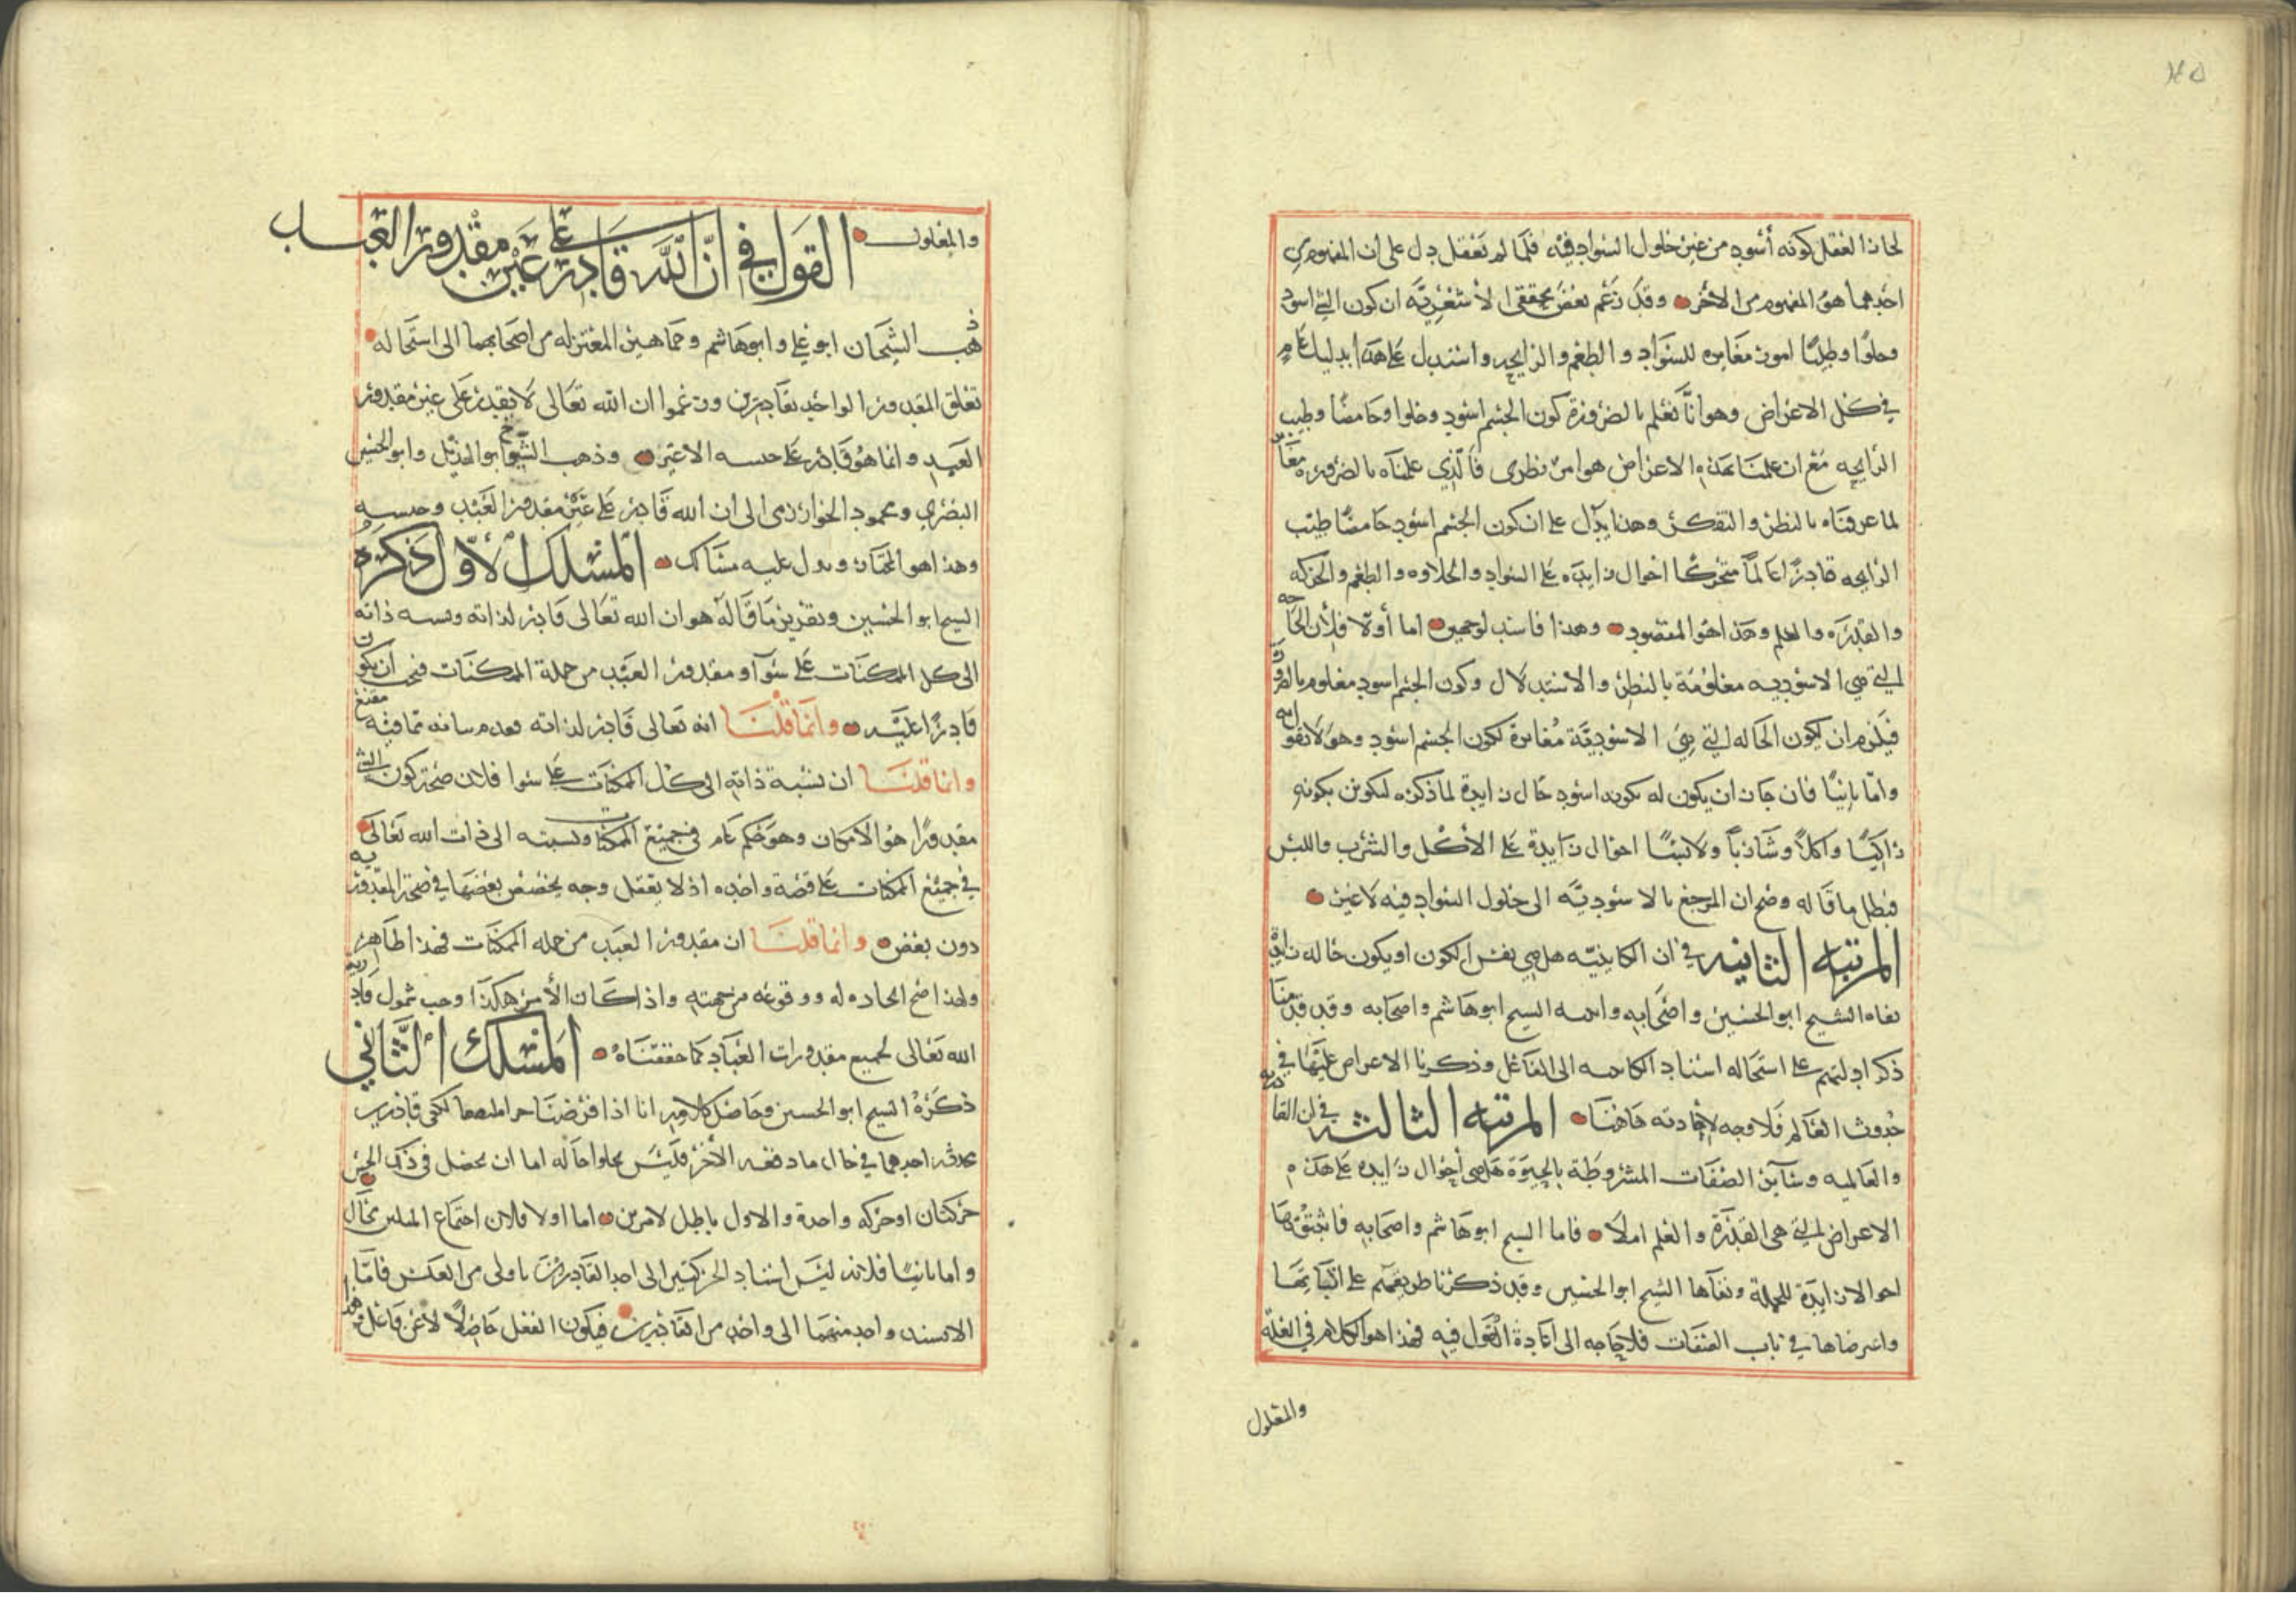 ١٤٥
لجاز العقل كونه أسود من غير حلول السواد فيه فلما لم يعقل دل على ان المفهوم من
احدهما هو المفهوم من الاخر وقد زعم بعض محققي الاشعرية ان كون الشي اسود
وحلوا وطيبا امور مغايره للسواد والطعم والرايحه واستدل على هذا بدليل عام
في كل الاعراض وهو انا نعلم بالضرورة كون الجسم اسود وحلوا وحامضا وطيب
الرايحه مع ان علمنا بهذه الاعراض هو امر نظرى فالذي علمناه بالضروره مغاير
لما عرفناه بالنظر والتفكر وهذا يدل على ان كون الجسم اسود حامضا طيب
الرايحه قادرا عالما متحركا احوال زايده على السواد والحلاوه والطعم والحركه
والقدره والعلم وهذا هو المقصود وهذا فاسد لوجهين اما أولا فلأن الحاله
التي هي الاسوديه معلومة بالنظر والاستدلال وكون الجسم اسود معلوم بالضرورة
فيلزم ان تكون الحاله التي هي الاسودية مغايرة لكون الجسم اسود وهو لا يقول به
واما ثانيا فان جاز ان يكون له بكونه اسود حال زايدة لما ذكره ليكونن بكونه
راكبا واكلا وشاربا ولابسا احوال زايدة على الأكل والشرب واللبس
فبطل ما قاله وصح ان المرجع بالاسودية الى حلول السواد فيه لا غير
المرتبه الثانيه في ان الكاينيه هل هي نفس الكون او يكون حاله زايدة
نفاه الشيخ ابو الحسين واصحابه واثبته الشيخ ابو هاشم واصحابه وقد قدمنا
ذكر ادلتهم على استحاله اسناد الكاينيه الى الفاعل وذكرنا الاعراض عليها في
حدوث العالم فلا وجه لاعادته هاهنا المرتبه الثالثه في ان القادريه
والعالميه وسائر الصفات المشروطة بالحيوة هل هي أحوال زايده على هذه
الاعراض التي هي القدرة والعلم ام لا فاما الشيخ ابو هاشم واصحابه فاثبتوها
احوالا زايدة للجملة ونفاها الشيخ ابو الحسين وقد ذكرنا طريقهم على اثباتها
واعترضناها في باب الصفات فلا حاجه الى اعادة القول فيه فهذا هو الكلام في العلة
والمعلول
والمعلول القول في ان الله قادر على عين مقدور العبد
ذهب الشيخان ابو علي وابو هاشم وجماهير المعتزله من اصحابهما الى استحاله
تعلق المقدور الواحد بقادرين وزعموا ان الله تعالى لا يقدر على عين مقدور
العبد وانما هو قادر على جنسه لا عينه وذهب الشيخ ابو الهذيل وابو الحسين
البصري ومحمود الخوارزمى الى ان الله قادر على عين مقدور العبد وجنسه
وهذا هو المختار ويدل عليه مسالك المسلك الأول ذكره
الشيخ ابو الحسين وتقرير ما قاله هو ان الله تعالى قادر لذاته ونسبه ذاته
الى كل الممكنات على سوآء ومقدور العبد من جملة الممكنات فيجب ان يكون
قادرا عليه وانما قلنا انه تعالى قادر لذاته فقدم بيانه بما فيه مقنع
وانما قلنا ان نسبة ذاته الى كل الممكنات على سوا فلان صحة كون الشي
مقدورا هو الامكان وهو حكم عام في جميع الممكنات ونسبته الى ذات الله تعالى
في جميع الممكنات على قضية واحده اذ لا يعقل وجه يخصص بعضها في صحة المقدورية
دون بعض وانما قلنا ان مقدور العبد من جمله الممكنات فهذا ظاهر
ولهذا صح ايجاده له ووقوعه من جهته واذا كان الأمر هكذا وجب شمول قادرية
الله تعالى لجميع مقدورات العباد كما حققناه المسلك الثاني
ذكره الشيخ ابو الحسين وحاصل كلامه انا اذا فرضنا جزا ملتصقا لكفي قادرين
جذبه احدهما في حال ما دفعه الأخر فليس يخلو حاله اما ان يحصل في ذلك الجزء
حركتان او حركه واحدة والاول باطل لامرين اما اولا فلان اجتماع المثلين محال
واما ثانيا فلانه ليس اسناد الحركتين الى احد القادرين باولى من العكس فاما
الا يسند واحد منهما الى واحد من القادرين فيكون الفعل حاصلا لا عن فاعل وهذا